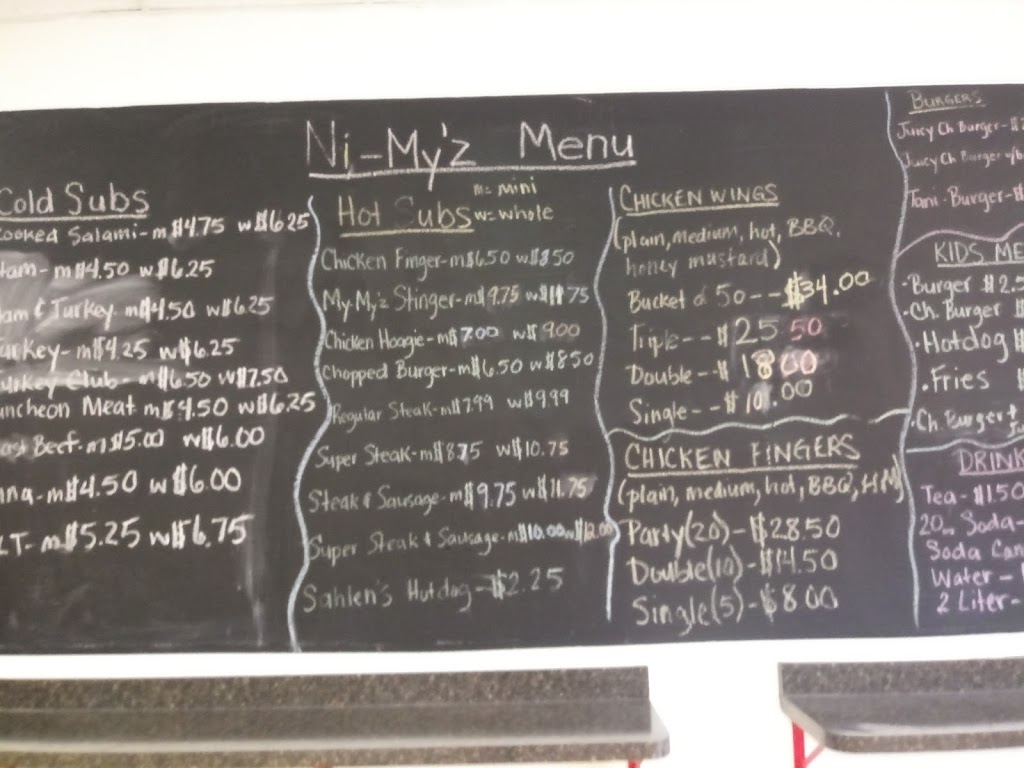 Ni-My'z Menu
Cold Subs
Cooked Salami-m$4.75 w$6.25
Ham-m$4.50 w$6.25
Ham & Turkey-m$4.50 w$6.25
Turkey-m$4.25 w$6.25
Turkey Club-m$6.50 w$7.50
Luncheon Meat m$4.50 w$6.25
Roast Beef-m$5.00 w$6.00
m$4.50 w$6.00
LT-m$5.25 w$6.75
m=mini
Hot Subs w=whole
Chicken Finger-m$6.50 w$8.50
My My'z Stinger-m$9.75 w$11.75
Chicken Hoagie-m$7.00 w$9.00
Chopped Burger-m$6.50 w$8.50
Regular Steak-m$7.99 w$9.99
Super Steak-m$8.75 w$10.75
Steak & Sausage-m$9.75 w$11.75
Super Steak & Sausage-m$10.00 w$12.00
Sahlen's Hotdog-$2.25
CHICKEN WINGS
(plain, medium, hot, BBQ,
honey mustard)
Bucket of 50--$34.00
Triple--$25.50
Double--$18.00
Single--$10.00
CHICKEN FINGERS
(plain, medium, hot, BBQ, HM)
Party(20)-$28.50
Double(10)-$14.50
Single(5)-$8.00
BURGERS
Juicy Ch Burger-$
Juicy Ch Burger w/b
Burger-$
KIDS ME
·Burger $2.5
·Ch. Burger $
·Hotdog $
·Fries $
·Ch. Burger +
DRINK
Tea-$1.50
20oz Soda-
Soda Can
Water-
2 Liter-